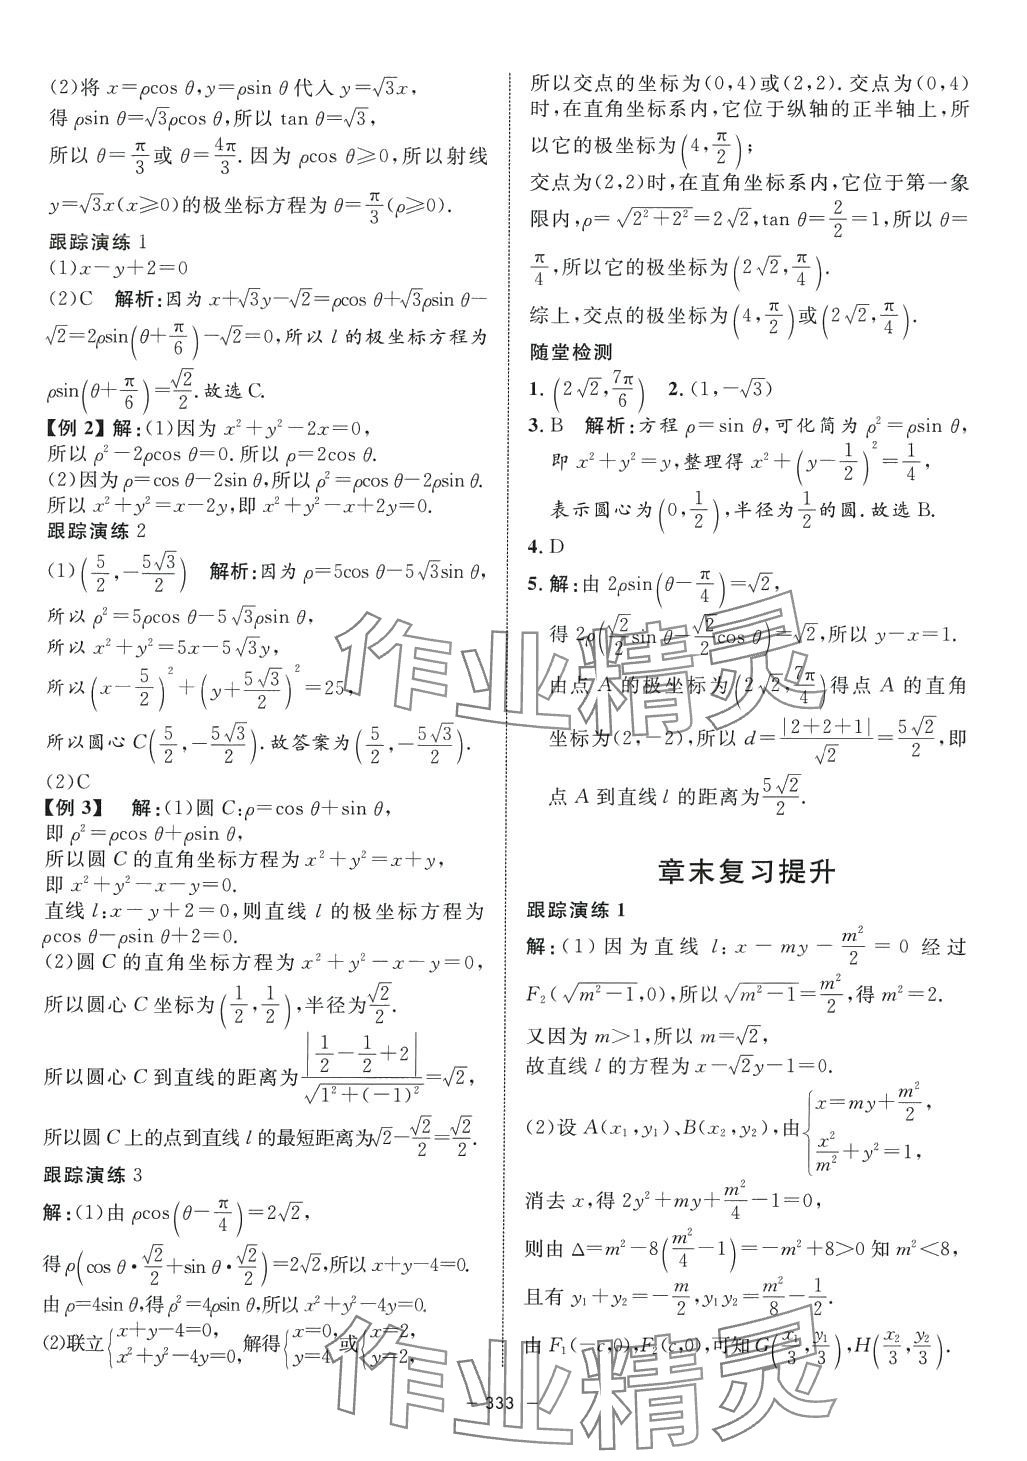 (2)将 x=ρcos θ,y=ρsin θ代入 y=√3x,
得 ρsin θ=√3ρcos θ,所以 tan θ=√3,
所以 θ=π/3或 θ=4π/3.因为 ρcos θ≥0,所以射线
y=√3x(x≥0)的极坐标方程为 θ=π/3(ρ≥0).
跟踪演练 1
(1)x-y+2=0
(2)C 解析:因为 x+√3y-√2=ρcos θ+√3ρsin θ-
√2=2ρsin(θ+π/6)-√2=0,所以 l 的极坐标方程为
ρsin(θ+π/6)=√2/2.故选 C.
【例 2】解:(1)因为 x²+y²-2x=0,
所以 ρ²-2ρcos θ=0.所以 ρ=2cos θ.
(2)因为 ρ=cos θ-2sin θ,所以 ρ²=ρcos θ-2ρsin θ.
所以 x²+y²=x-2y,即 x²+y²-x+2y=0.
跟踪演练 2
(1)(5/2,-5√3/2) 解析:因为 ρ=5cos θ-5√3sin θ,
所以 ρ²=5ρcos θ-5√3ρsin θ,
所以 x²+y²=5x-5√3y,
所以(x-5/2)²+(y+5√3/2)²=25,
所以圆心 C(5/2,-5√3/2).故答案为(5/2,-5√3/2).
(2)C
【例 3】 解:(1)圆 C:ρ=cos θ+sin θ,
即 ρ²=ρcos θ+ρsin θ,
所以圆 C 的直角坐标方程为 x²+y²=x+y,
即 x²+y²-x-y=0.
直线 l:x-y+2=0,则直线 l 的极坐标方程为
ρcos θ-ρsin θ+2=0.
(2)圆 C 的直角坐标方程为 x²+y²-x-y=0,
所以圆心 C 坐标为(1/2,1/2),半径为√2/2.
所以圆心 C 到直线的距离为|1/2-1/2+2|/√(1²+(-1)²)=√2,
所以圆 C 上的点到直线 l 的最短距离为√2-√2/2=√2/2.
跟踪演练 3
解:(1)由 ρcos(θ-π/4)=2√2,
得 ρ(cos θ·√2/2+sin θ·√2/2)=2√2,所以 x+y-4=0.
由 ρ=4sin θ,得 ρ²=4ρsin θ,所以 x²+y²-4y=0.
(2)联立{x+y-4=0, x²+y²-4y=0, 解得{x=0, y=4 或{x=2, y=2,
所以交点的坐标为(0,4)或(2,2).交点为(0,4)
时,在直角坐标系内,它位于纵轴的正半轴上,所
以它的极坐标为(4,π/2);
交点为(2,2)时,在直角坐标系内,它位于第一象
限内,ρ=√(2²+2²)=2√2,tan θ=2/2=1,所以 θ=
π/4,所以它的极坐标为(2√2,π/4).
综上,交点的极坐标为(4,π/2)或(2√2,π/4).
随堂检测
1. (2√2,7π/6) 2. (1,-√3)
3. B 解析:方程 ρ=sin θ,可化简为 ρ²=ρsin θ,
即 x²+y²=y,整理得 x²+(y-1/2)²=1/4,
表示圆心为(0,1/2),半径为1/2的圆.故选 B.
4. D
5. 解:由 2ρsin(θ-π/4)=√2,
得 2ρ(√2/2 sin θ-√2/2 cos θ)=√2,所以 y-x=1.
由点 A 的极坐标为(2√2,7π/4)得点 A 的直角
坐标为(2,-2),所以 d=|2+2+1|/√2=5√2/2,即
点 A 到直线 l 的距离为5√2/2.
章末复习提升
跟踪演练 1
解:(1)因为直线 l:x-my-m²/2=0 经过
F₂(√(m²-1),0),所以√(m²-1)=m²/2,得 m²=2.
又因为 m>1,所以 m=√2,
故直线 l 的方程为 x-√2y-1=0.
(2)设 A(x₁,y₁)、B(x₂,y₂),由{x=my+m²/2, x²/m²+y²=1,
消去 x,得 2y²+my+m²/4-1=0,
则由 Δ=m²-8(m²/4-1)=-m²+8>0 知 m²<8,
且有 y₁+y₂=-m/2,y₁y₂=m²/8-1/2.
由 F₁(-c,0),F₂(c,0),可知 G(x₁/3,y₁/3),H(x₂/3,y₂/3).
- 333 -
作业精灵
作业精灵